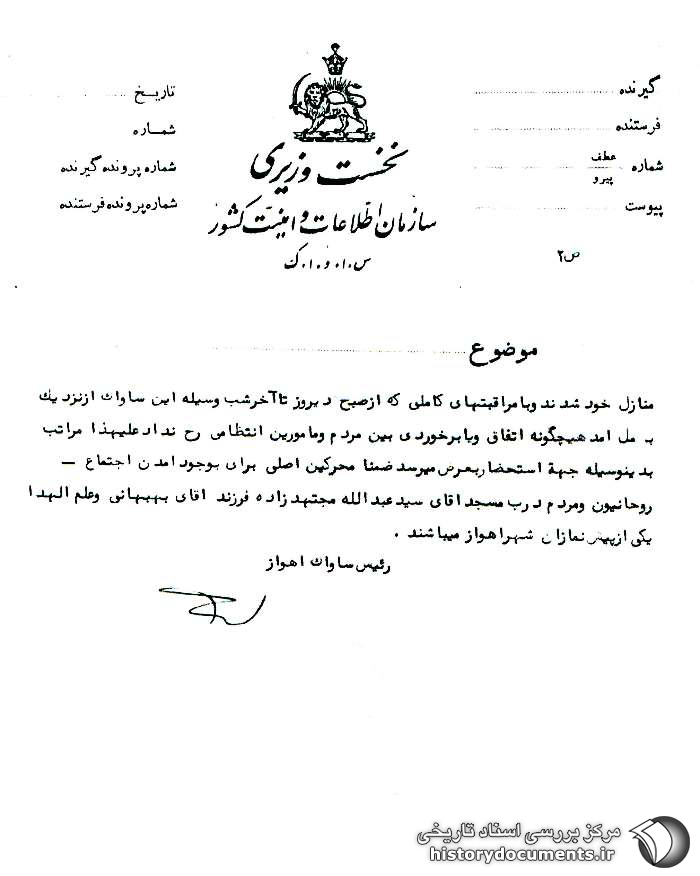 گیرنده
فرستنده
شماره عطف
پیرو
پیوست
تاریخ
شماره
شماره پرونده گیرنده
شماره پرونده فرستنده
نخست وزیری
سازمان اطلاعات و امنیت کشور
س.ا.و.ا.ک
ص۲
موضوع
منازل خود شدند وبامراقبتهای کاملی که ازصبح دیروز تاآخرشب وسیله این ساواک ازنزدیک
بعمل امد هیچگونه اتفاق ویابرخوردی بین مردم ومامورین انتظامی رخ نداد علیهذا مراتب
بدینوسیله جهة استحضاربعرض میرسد ضمنا محرکین اصلی برای بوجود امدن اجتماع –
روحانیون ومردم درب مسجد اقای سید عبدالله مجتهدزاده فرزند اقای بهبهانی وعلم الهدا
یکی ازپیش نمازان شهراهواز میباشند .
رئیس ساواک اهواز
مرکز بررسی اسناد تاریخی
historydocuments.ir